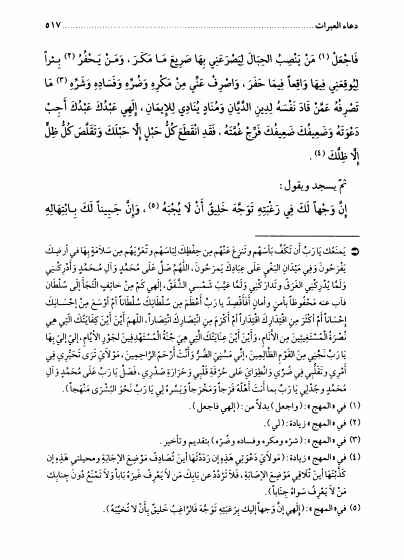 دعاء العبرات ........ ٥١٧
فَاجْعَلْ (١) مَنْ يَنْصِبُ الحِبَالَ لِيَصْرَعَنِي بِهَا صَرِيعَ مَا مَكَرَ، وَمَنْ يَحْفُرُ (٢) بِئْراً
لِيُوقِعَنِي فِيهَا وَاقِعاً فِيمَا حَفَرَ، وَاصْرِفْ عَنِّي مِنْ مَكْرِهِ وَضُرِّهِ وَفَسَادِهِ وَشَرِّهِ (٣) مَا
تَصْرِفُهُ عَمَّنْ قَادَ نَفْسَهُ لِدِينِ الدَّيَّانِ وَمُنَادٍ يُنَادِي لِلإِيمَانِ، إِلَهِي عَبْدُكَ عَبْدُكَ أَجِبْ
دَعْوَتَهُ وَضَعِيفُكَ ضَعِيفُكَ فَرِّجْ غُمَّتَهُ، فَقَدِ انْقَطَعَ كُلُّ حَبْلٍ إِلَّا حَبْلَكَ وَتَقَلَّصَ كُلُّ ظِلٍّ
إِلَّا ظِلَّكَ (٤).
ثمّ يسجد ويقول:
إِنَّ وَجْهاً لَكَ فِي رَغْبَتِهِ تَوَجَّهَ خَلِيقٌ أَنْ لَا يُجْبَهُ (٥)، وَإِنَّ جَبِيناً لَكَ بِابْتِهَالِهِ
يَمنَعُكَ يَا رَبِّ أَن تَكُفَّ بَأسَهُم وتَنزِعَ عَنْهُم مِن حِفْظِكَ لِبَاسَهُم وتُعَرِّيَهُم مِن سَلاَمَةٍ بِهَا في أَرضِكَ
يَفْرَحُونَ وَفِي مَيْدَانِ البَغْيِ عَلَى عِبَادِكَ يَمرَحُونَ، اللَّهُمَّ صَلِّ عَلَى مُحَمَّدٍ وآلِ مُحَمَّدٍ وَأَدْرِكْنِي
وَلَمَّا يُدْرِكْنِي الغَرَقُ وتَدَارَكْنِي وَلَمَّا غَيَّبَ شَمْسِي الشَّفَقُ، إِلَهِي كَمْ مِنْ خَائِفٍ التَجَأَ إِلَى سُلْطَانٍ
فَآبَ عنه مَحْفُوظاً بِأَمنٍ وأَمَانٍ أَفَأَقْصِدُ يَا رَبِّ أَعظَمَ مِن سُلطَانِكَ سُلْطَاناً أَمْ أَوْسَعَ مِنْ إِحْسَانِكَ
إِحْسَاناً أَمْ أَكْثَرَ مِنِ اقْتِدَارِكَ اقْتِدَاراً أَمْ أَكْرَمَ مِنِ انْتِصَارِكَ انْتِصَاراً، اللهمَّ أَيْنَ أَيْنَ كِفَايَتُكَ الَّتِي هِيَ
نُصْرَةُ المُسْتَغِيثِينَ مِنَ الأَنَامِ، وَأَيْنَ أَيْنَ عِنَايَتُكَ الَّتِي هِيَ جُنَّةُ المُسْتَهْدَفِينَ لِجَوْرِ الأَيَّامِ، إِلَيَّ إِلَيَّ بِهَا
يَا رَبِّ نَجِّنِي مِنَ القَوْمِ الظَّالِمِينَ، إِنِّي مَسَّنِيَ الضُّرُّ وَأَنْتَ أَرْحَمُ الرَّاحِمِينَ، مَوْلاَيَ تَرَى تَحَيُّرِي فِي
أَمْرِي وَتَقَلُّبِي فِي ضُرِّي وَانْطِوَايَ عَلَى حُرْقَةِ قَلْبِي وَحَرَارَةِ صَدْرِي، فَصَلِّ يَا رَبِّ عَلَى مُحَمَّدٍ وآلِ
مُحَمَّدٍ وَجُدْ لِي يَا رَبِّ بِمَا أَنتَ أَهْلُهُ فَرَجاً وَمَخْرَجاً وَيَسِّرْ لِي يَا رَبِّ نَحْوَ البُشْرَى مَنْهَجاً).
(١) في «المهج»: (واجعل) بدلاً من: (إلهي فاجعل).
(٢) في «المهج» زيادة: (لي).
(٣) في «المهج»: (شرّه ومكره وفساده وضُرّه) بتقديم وتأخير.
(٤) في «المهج» زيادة: (مَولاَيَ دَعْوَتِي هَذِهِ إِن رَدَدْتَهَا أَينَ تُصَادِفُ مَوْضِعَ الإِجَابَةِ ومحيلتي هَذِهِ إن
كَذَّبْتَهَا أَينَ تُلاَقِي مَوْضِعَ الإِصَابَةِ، فَلاَ تَرْدُدْ عن بَابِكَ مَن لاَ يَعْرِفُ غَيرَهُ بَاباً وَلاَ تَمْنَعْ دُونَ جنابِكَ
مَنْ لاَ يَعْرِفُ سِوَاهُ جَنَاباً).
(٥) في «المهج»: (إِلَهِي إِنَّ وَجهاً إليك بِرَغبَتِهِ تَوَجَّهَ فَالرَّاغِبُ خَلِيقٌ بِأَنْ لاَ تُخَيِّبَهُ).